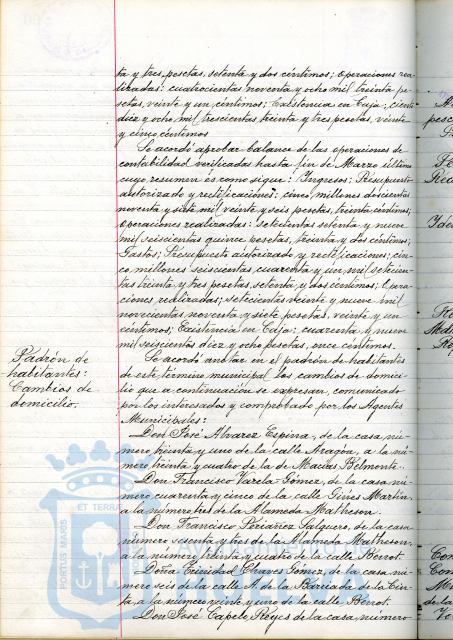 ta y tres pesetas, setenta y dos céntimos; Operaciones rea-
lizadas: cuatrocientas noventa y ocho mil treinta pe-
setas, veinte y un céntimos; Existencia en Caja, ciento
diez y ocho mil trescientas treinta y tres pesetas, veinte
y cinco céntimos
Se acordó aprobar balance de las operaciones de
contabilidad verificadas hasta fin de Marzo último
cuyo resumen és como sigue: Ingresos; Presupuesto
autorizado y rectificaciones; cinco millones doscientas
noventa y siete mil veinte y seis pesetas, treinta céntimos;
Operaciones realizadas: setecientas setenta y nueve
mil seiscientas quince pesetas, treinta y dos céntimos;
Gastos; Presupuesto autorizado y rectificaciones; cin-
co millones seiscientas cuarenta y un mil setecien-
tas treinta y tres pesetas, setenta y dos céntimos; Opera-
ciones realizadas; setecientas veinte y nueve mil
novecientas noventa y siete pesetas, veinte y un
céntimos; Existencia en Caja: cuarenta y nueve
mil seiscientas diez y ocho pesetas, once céntimos.
Padrón de
habitantes:
Cambios de
domicilio.
Se acordó anotar en el padrón de habitantes
de este término municipal los cambios de domici-
lio que a continuación se expresan, comunicado
por los interesados y comprobado por los Agentes
Municipales:
Don José Alvarez Espina, de la casa nú-
mero treinta y uno de la calle Aragón, a la nú-
mero treinta y cuatro de la de Macías Belmonte.
Don Francisco Varela Gómez, de la casa
número cuarenta y cinco de la calle Ginés Martín,
a la número tres de la Alameda Matheson.
Don Francisco Periáñez Salguero, de la casa
número sesenta y tres de la Alameda Matheson,
a la número treinta y cuatro de la calle Berrot.
Doña Trinidad Chaves Gómez, de la casa
número seis de la calle A. de la Barriada de la Cin-
ta, a la número veinte y uno de la calle Berrot.
Don José Capelo Reyes de la casa, número
ET TERRA
PORTUS MARIS